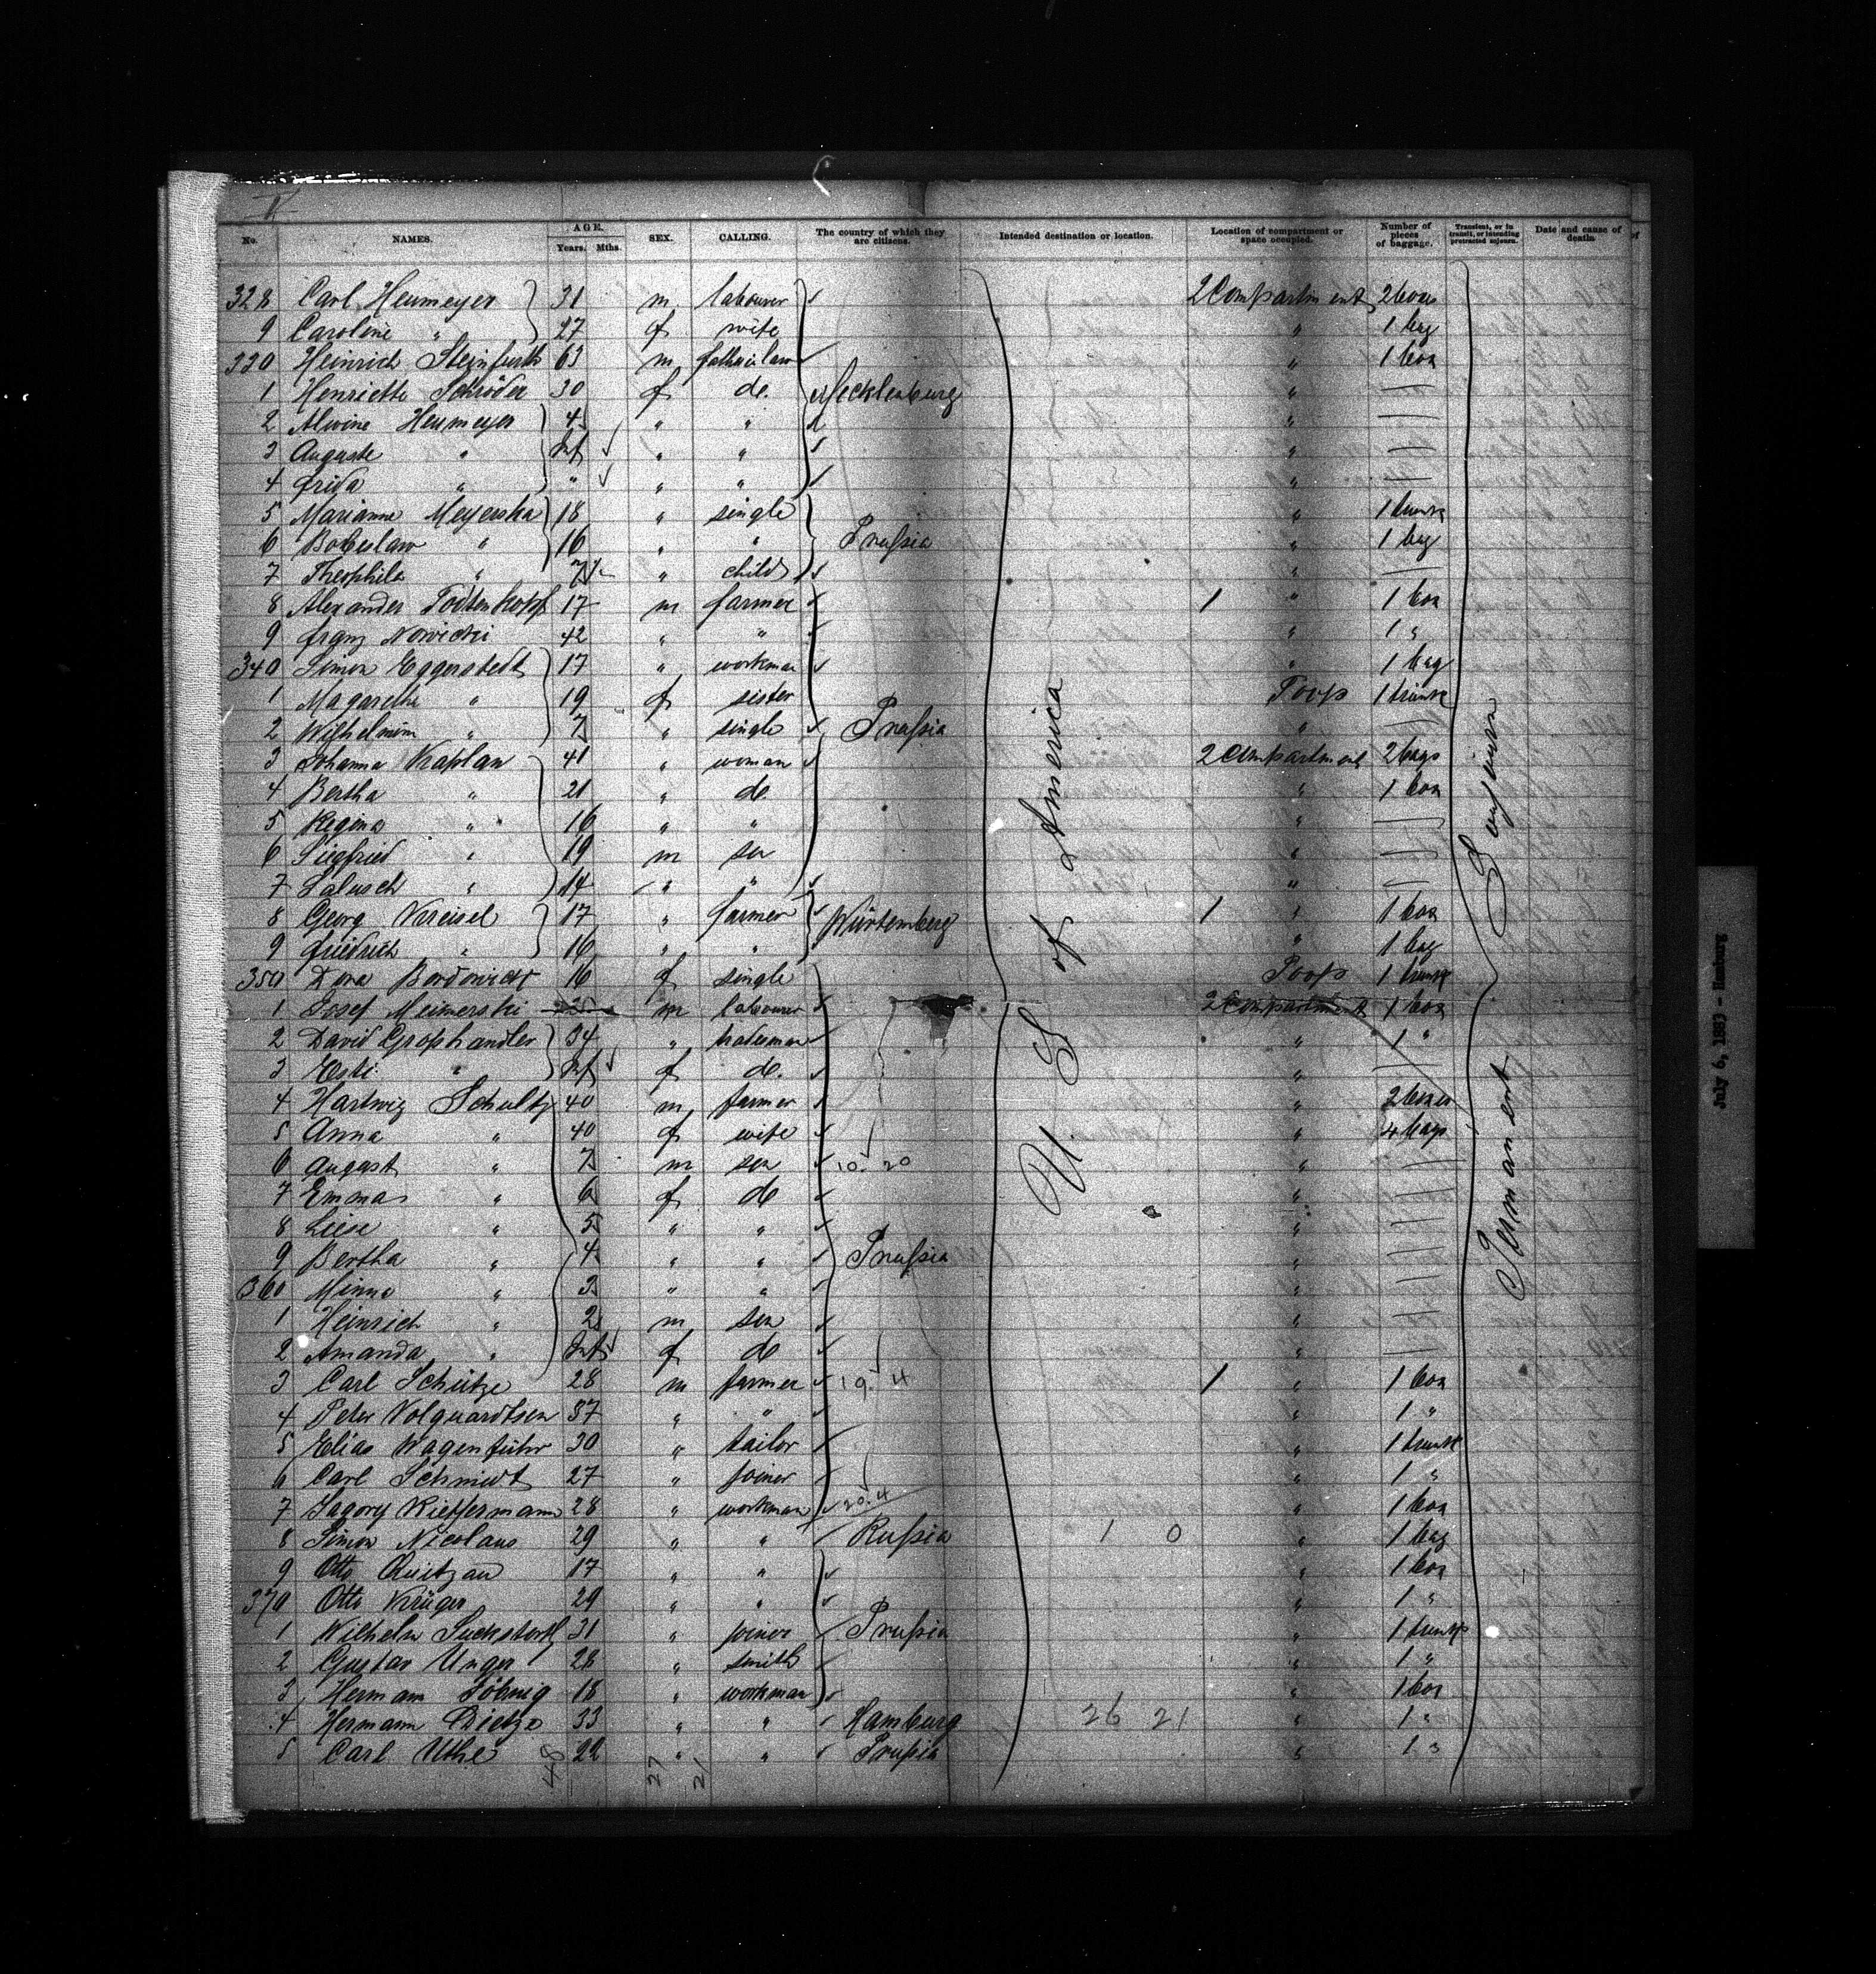 No. NAMES. AGE. Years. Mths. SEX. CALLING. The country of which they are citizens. Intended destination or location. Location of compartment or space occupied. Number of pieces of baggage. Transient, or in transit, or intending protracted sojourn. Date and cause of death.
328 Carl Heumeyer 31 m labourer 2 Compartment 2 boxes
9 Caroline " 27 f wife " 1 bag
330 Heinrich Steinfurth 63 m father in law " 1 box
1 Henriette Schröder 30 f do. Mecklenburg "
2 Alwine Heumeyer 4 " " "
3 Auguste " Inf " " "
4 Frida " " " " "
5 Marianne Meyerska 18 " single " 1 trunk
6 Boleslaw " 16 " " Prussia " 1 bag
7 Theophila " 7 " child "
8 Alexander Todtenkopf 17 m farmer 1 " 1 box
9 Franz Nowicki 42 " " " 1 "
340 Simon Eggerstedt 17 " workman " 1 bag
1 Magarethe " 19 f sister Poop 1 trunk
2 Wilhelmin " 7 " single Prussia "
3 Johanna Kaplan 41 " woman 2 Compartment 2 bags
4 Bertha " 21 " do. " 1 box
5 Regina " 16 " " "
6 Siegfried " 19 m son "
7 Salusch " 14 " " "
8 Georg Kreisel 17 " farmer Würtemberg 1 " 1 box
9 Friedrich " 16 " " " 1 bag
350 Dora Bordowicz 16 f single Poop 1 trunk
1 Josef Meimerski m labourer 2 Compartment 1 box
2 David Grosshandler 34 " tradesman " 1 "
3 Esti " Inf f do. "
4 Hartwig Schultz 40 m farmer " 2 boxes
5 Anna " 40 f wife " 4 bags
6 August " 7 m son 10. 20 "
7 Emma " 6 f do "
8 Liese " 5 " " "
9 Bertha " 4 " " Prussia "
360 Minna " 3 " " "
1 Heinrich " 2 m son "
2 Amanda " Inf f do "
3 Carl Schütze 28 m farmer 19. 4 1 " 1 box
4 Peter Volquardtsen 37 " " " 1 "
5 Elias Wagenführ 30 " tailor " 1 trunk
6 Carl Schmidt 27 " joiner " 1 "
7 Sagory Kiessermann 28 " workman 20. 4 " 1 box
8 Simon Nicolaus 29 " " Russia 1 0 " 1 bag
9 Otto Quitzau 17 " " " 1 box
370 Otto Krüger 29 " " " 1 "
1 Wilhelm Suckstorf 31 " joiner Prussia " 1 trunk
2 Gustav Unger 28 " smith " 1 "
3 Hermann Söhnig 18 " workman " 1 box
4 Hermann Dietze 33 " " Hamburg 26 21 " 1 "
5 Carl Uthe 22 " " Prussia " 1 "
48 27 21
U. S. of America
Permanent Sojourn
July 6, 1883 - Hamburg